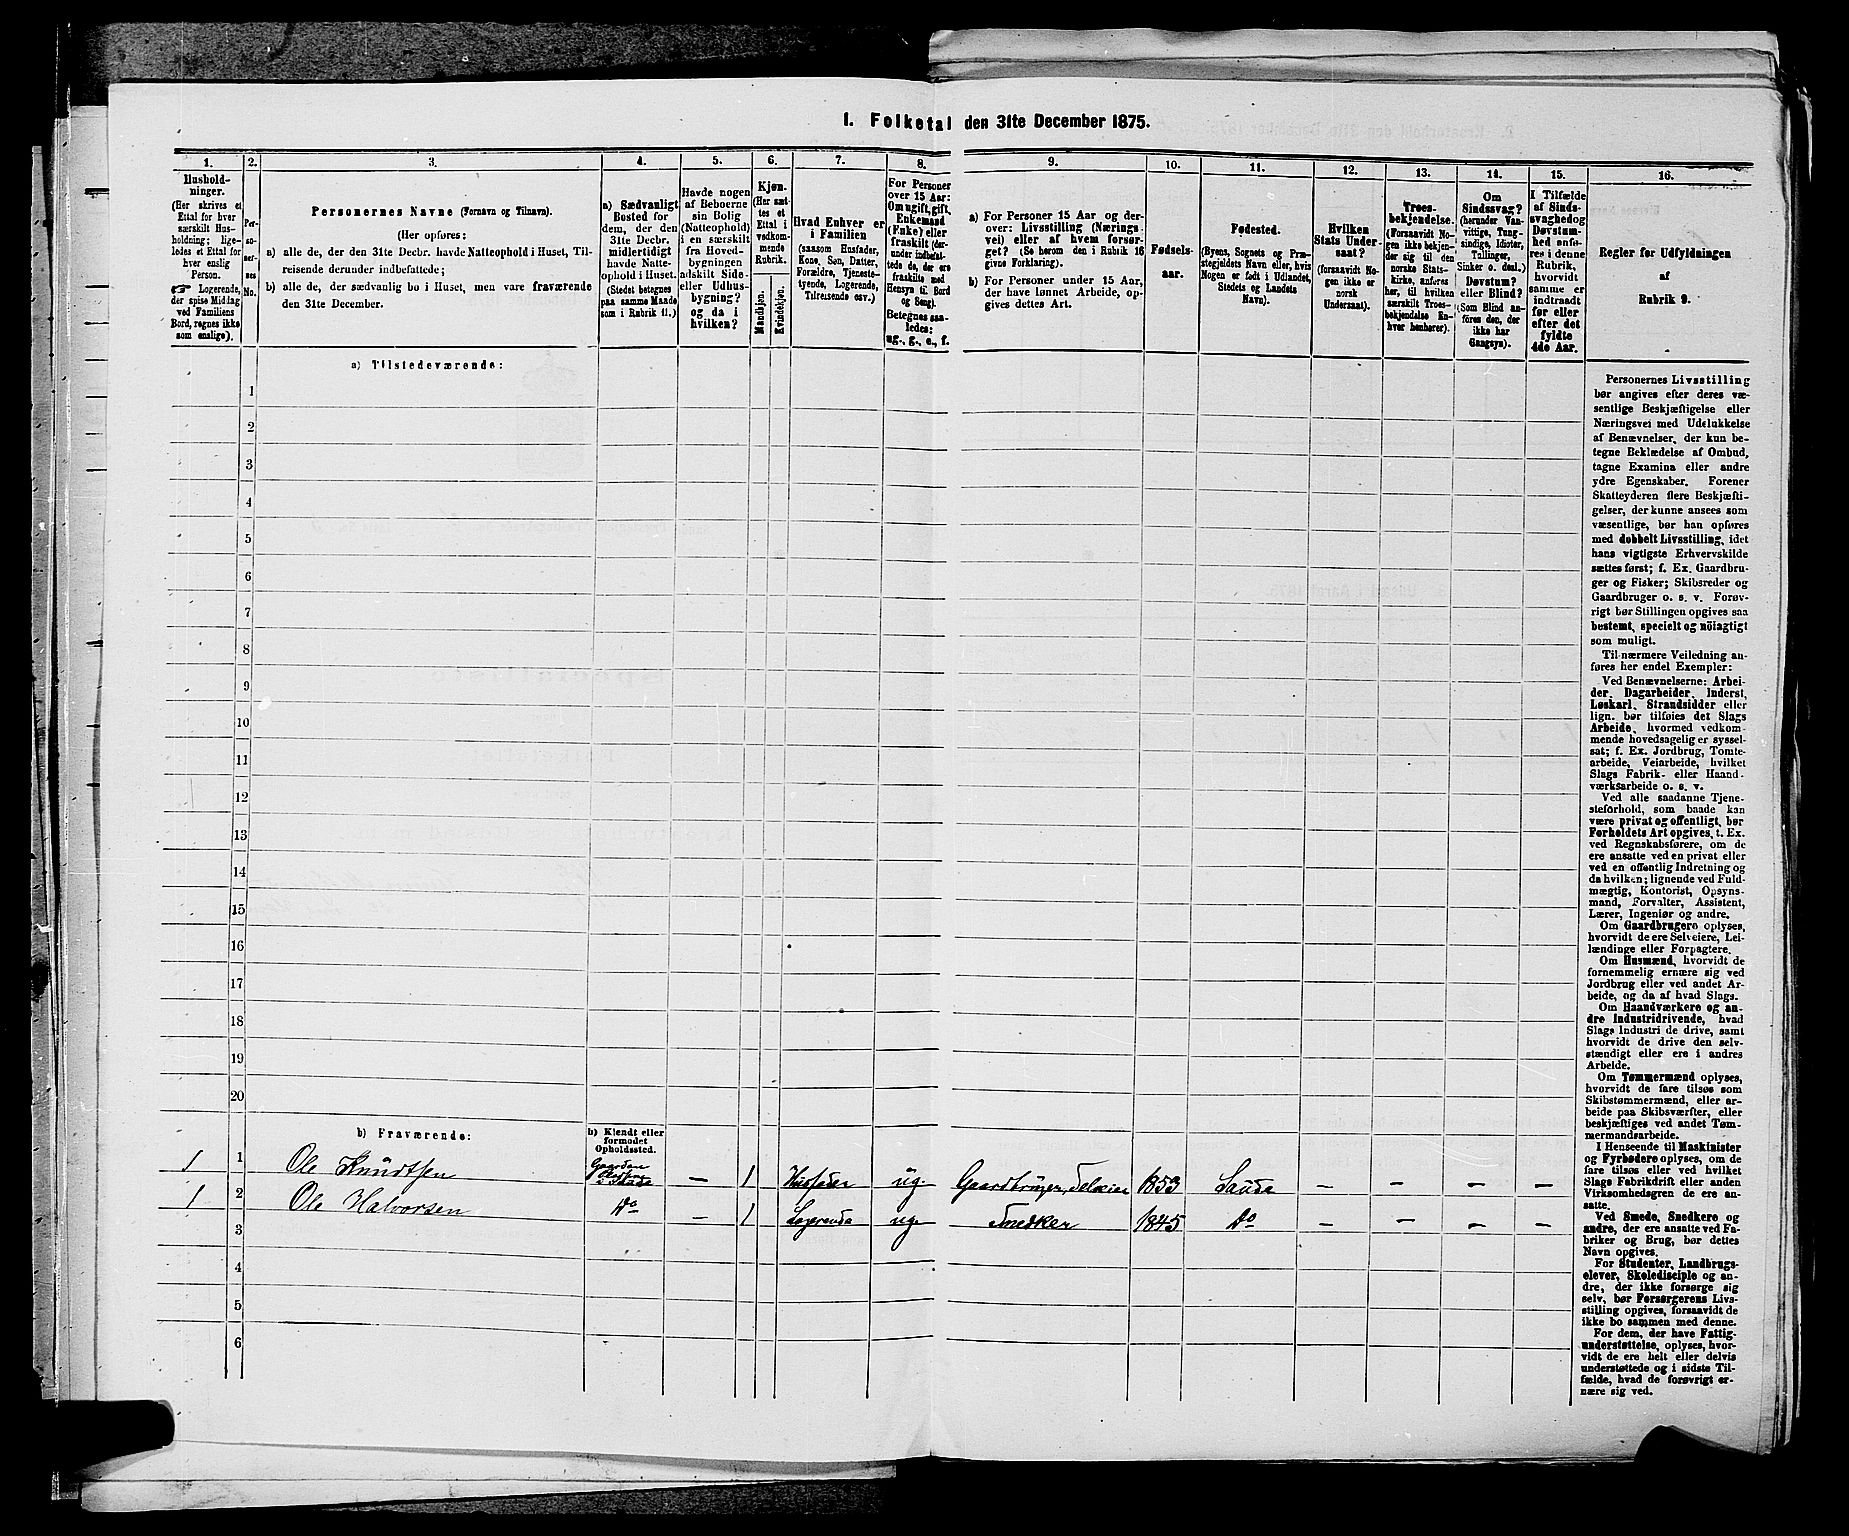 I. Folketal den 31te December 1875.
1. 2. 3. 4. 5. 6. 7. 8. 9. 10. 11. 12. 13. 14. 15. 16.
Hushold-
ninger.
(Her skrives et
Ettal for hver
særskilt Hus-
holdning; lige-
ledes et Ettal for
hver enslig
Person.
☞ Logerende,
der spise Middag
ved Familiens
Bord, regnes ikke
som enslige).
Per-
so-
ner-
nes
No.
Personernes Navne (Fornavn og Tilnavn).
(Her opføres:
a) alle de, der den 31te Decbr. havde Natteophold i Huset, Til-
reisende derunder indbefattede;
b) alle de, der sædvanlig bo i Huset, men vare fraværende
den 31te December.
a) Sædvanligt
Bosted for
dem, der den
31te Decbr.
midlertidigt
havde Natte-
ophold i Huset.
(Stedet betegnes
paa samme Maade
som i Rubrik 11.)
Havde nogen
af Beboerne
sin Bolig
(Natteophold)
i en særskilt
fra Hoved-
bygningen
adskilt Side-
eller Udhus-
bygning?
og da i
hvilken?
Kjøn.
(Her sæt-
tes et
Ettal i
vedkom-
mende
Rubrik.
Mandkjøn.
Kvindekjøn.
Hvad Enhver er
i Familien
(saasom Husfader,
Kone, Søn, Datter,
Forældre, Tjeneste-
tyende, Logerende,
Tilreisende osv.)
For Personer
over 15 Aar:
Om ugift, gift,
Enkemand
(Enke) eller
fraskilt (der-
under indbefat-
tede de, der ere
fraskilte med
Hensyn til Bord
og Seng).
Betegnes saa-
ledes:
ug., g., e., f.
a) For Personer 15 Aar og der-
over: Livsstilling (Nærings-
vei) eller af hvem forsør-
get? (Se herom den i Rubrik 16
givne Forklaring).
b) For Personer under 15 Aar,
der have lønnet Arbeide, op-
gives dettes Art.
Fødsels-
aar.
Fødested.
(Byens, Sognets og Præ-
stegjeldets Navn eller, hvis
Nogen er født i Udlandet,
Stedets og Landets
Navn).
Hvilken
Stats Under-
saat?
(forsaavidt No-
gen ikke er
norsk
Undersaat).
Troes-
bekjendelse.
(Forsaavidt No-
gen ikke bekjen-
der sig til den
norske Stats-
kirke, anføres
her, til hvilken
særskilt Troes-
bekjendelse En-
hver henhører).
Om
Sindssvag?
(herunder Van-
vittige, Tung-
sindige, Idioter,
Tullinger,
Sinker o. desl.)
Døvstum?
eller Blind?
(Som Blind an-
føres den, der
ikke har
Gangsyn).
I Tilfælde
af Sinds-
svaghed og
Døvstum-
hed anfø-
res i denne
Rubrik,
hvorvidt
samme er
indtraadt
før eller
efter det
fyldte
4de Aar.
Regler for Udfyldningen
af
Rubrik 9.
a) Tilstedeværende:
1
2
3
4
5
6
7
8
9
10
11
12
13
14
15
16
17
18
19
20
b) Fraværende:
b) Kjendt eller
formodet
Opholdssted.
1 1 Ole Knudtsen Gaarden i Sauda — 1 Husfader ug. Gaardbruger, Selveier 1853 Sauda — — — —
1 2 Ole Halvorsen Do — 1 Logerende ug. Snedker 1845 Do — — — —
3
4
5
6
Personernes Livsstilling
bør angives efter deres væ-
sentlige Beskjæftigelse eller
Næringsvei med Udelukkelse
af Benævnelser, der kun be-
tegne Beklædelse af Ombud,
tagne Examina eller andre
ydre Egenskaber. Forener
Skatteyderen flere Beskjæfti-
gelser, der kunne ansees som
væsentlige, bør han opføres
med dobbelt Livsstilling, idet
hans vigtigste Erhvervskilde
sættes først; f. Ex. Gaardbru-
ger og Fisker; Skibsreder og
Gaardbruger o. s. v. Forøv-
rigt bør Stillingen opgives saa
bestemt, specielt og nöiagtigt
som muligt.
Til nærmere Veiledning an-
føres her endel Exempler:
Ved Benævnelserne: Arbei-
der, Dagarbeider, Inderst,
Løskarl, Strandsidder eller
lign. bør tilføies det Slags
Arbeide, hvormed vedkom-
mende hovedsagelig er syssel-
sat; f. Ex. Jordbrug, Tomte-
arbeide, Veiarbeide, hvilket
Slags Fabrik- eller Haand-
værksarbeide o. s. v.
Ved alle saadanne Tjene-
steforhold, som baade kan
være privat og offentligt, bør
Forholdets Art opgives, t. Ex.
ved Regnskabsførere, om de
ere ansatte ved en privat eller
ved en offentlig Indretning og
da hvilken; lignende ved Fuld-
mægtig, Kontorist, Opsyns-
mand, Forvalter, Assistent,
Lærer, Ingeniør og andre.
Om Gaardbrugere oplyses,
hvorvidt de ere Selveiere, Lei-
lændinge eller Forpagtere.
Om Husmænd, hvorvidt de
fornemmelig ernære sig ved
Jordbrug eller ved andet Ar-
beide, og da af hvad Slags.
Om Haandværkere og an-
dre Industridrivende, hvad
Slags Industri de drive, samt
hvorvidt de drive den selv-
stændigt eller ere i andres
Arbeide.
Om Tømmermænd oplyses,
hvorvidt de fare tilsøs som
Skibstømmermænd, eller ar-
beide paa Skibsværfter, eller
beskjæftiges ved andet Tøm-
mermandsarbeide.
I Henseende til Maskinister
og Fyrbødere oplyses, om de
fare tilsøs eller ved hvilket
Slags Fabrikdrift eller anden
Virksomhedsgren de ere an-
satte.
Ved Smede, Snedkere og
andre, der ere ansatte ved Fa-
briker og Brug, bør dettes
Navn opgives.
For Studenter, Landbrugs-
elever, Skoledisciple og an-
dre, der ikke forsørge sig
selv, bør Forsørgerens Livs-
stilling opgives, forsaavidt de
ikke bo sammen med denne.
For dem, der have Fattig-
understøttelse, oplyses, hvor-
vidt de ere helt eller delvis
understøttede og i sidste Til-
fælde, hvad de forøvrigt er-
nære sig ved.